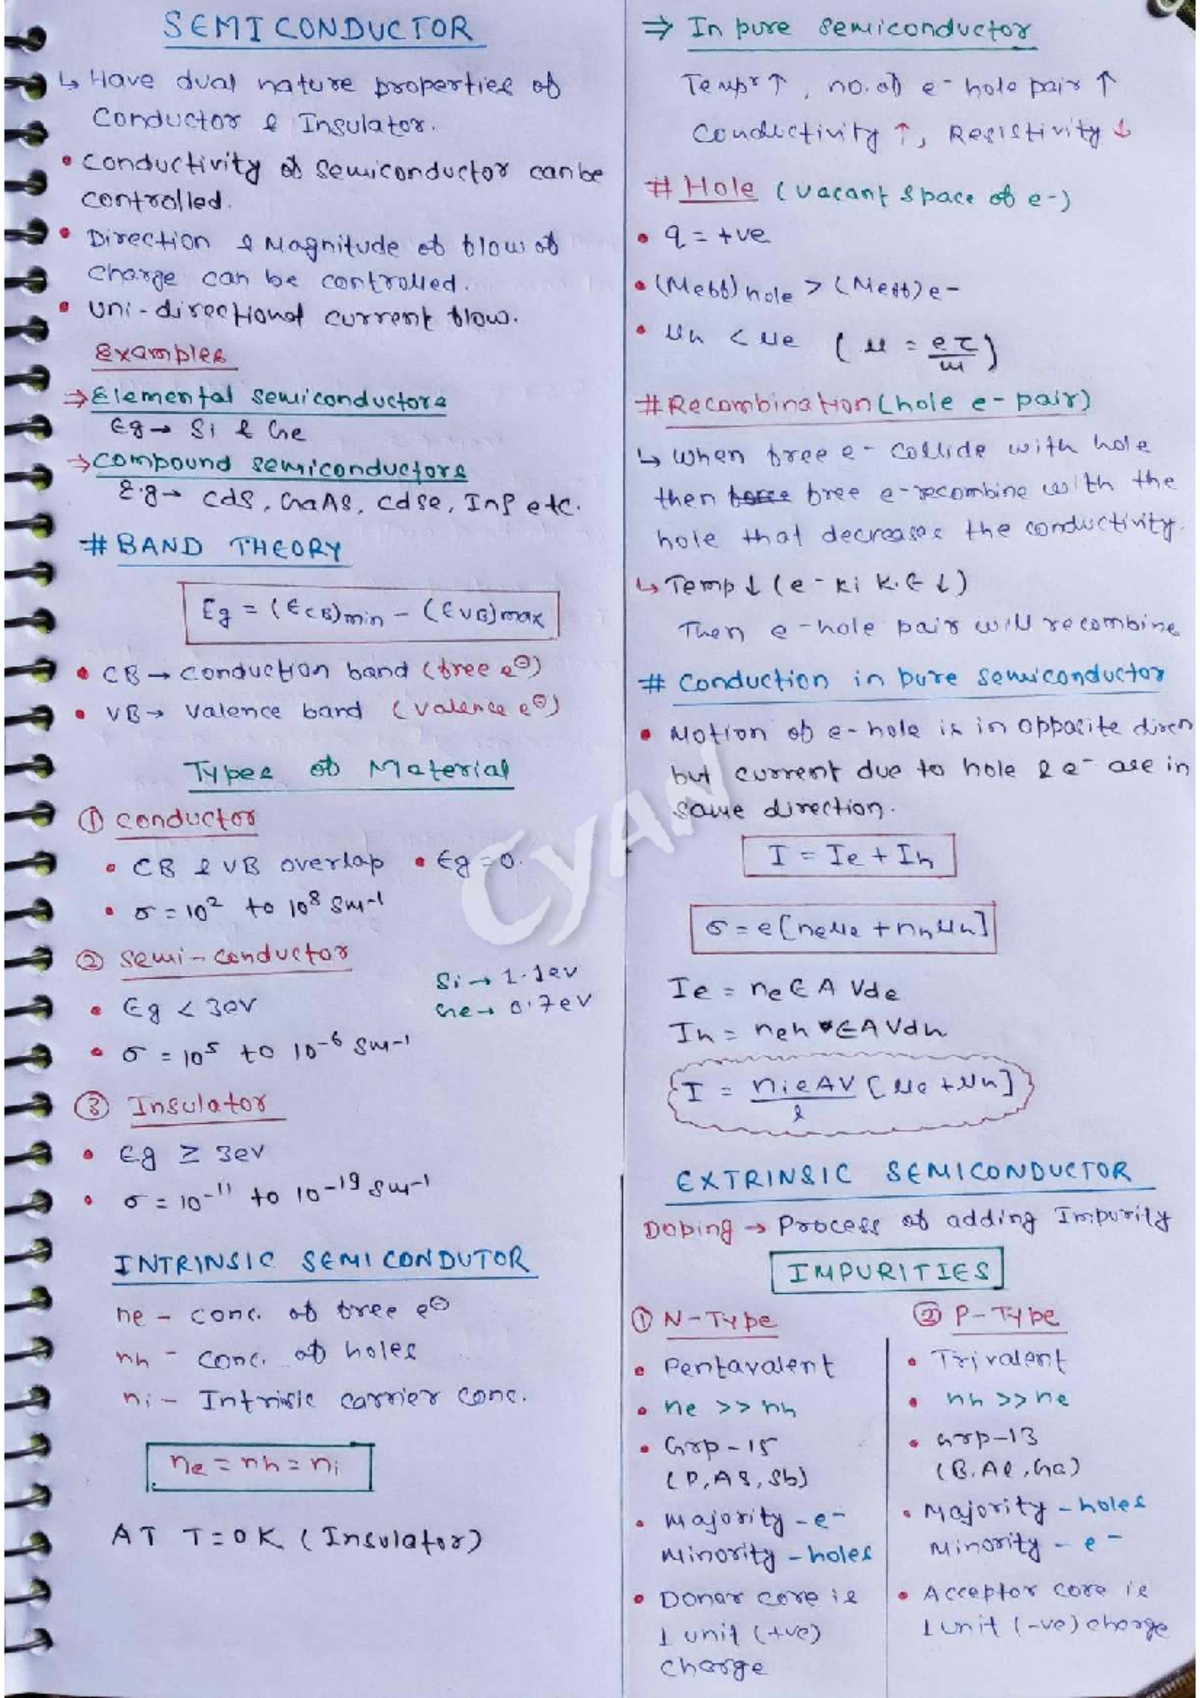 SEMICONDUCTOR
↳ Have dual nature properties of
Conductor & Insulator.
• Conductivity of semiconductor can be
controlled.
• Direction & Magnitude of flow of
charge can be controlled.
• Uni-directional current flow.
Examples
⇒ Elemental semiconductors
Eg → Si & Ge
⇒ Compound semiconductors
E.g → CdS, GaAs, CdSe, InP etc.
# BAND THEORY
Eg = (ECB)min - (EVB)max
• CB → Conduction band (free e⊖)
• VB → Valence band (Valence e⊖)
Types of Material
① Conductor
• CB & VB overlap • Eg = 0.
• σ = 10² to 10⁸ Sm⁻¹
② Semi-conductor
Si → 1.1eV
• Eg < 3eV
Ge → 0.7eV
• σ = 10⁵ to 10⁻⁶ Sm⁻¹
③ Insulator
• Eg ≥ 3eV
• σ = 10⁻¹¹ to 10⁻¹⁹ Sm⁻¹
INTRINSIC SEMICONDUTOR
ne - conc. of free e⊖
nh - conc. of holes
ni - Intrisic carrier conc.
ne = nh = ni
AT T=0K (Insulator)
⇒ In pure semiconductor
Tempr ↑, no. of e- hole pair ↑
Conductivity ↑, Resistivity ↓
# Hole (Vacant space of e-)
• q = +ve
• (Meff)hole > (Meff)e-
• μh < μe (μ = eτ/m)
# Recombination (hole e- pair)
↳ When free e- collide with hole
then free e- recombine with the
hole that decreases the conductivity.
↳ Temp ↓ (e- ki K.E ↓)
Then e- hole pair will recombine
# Conduction in pure semiconductor
• Motion of e- hole is in opposite diren
but current due to hole & e- are in
same direction.
I = Ie + Ih
σ = e[neμe + nhμh]
Ie = neEAVde
Ih = neh EAVdh
I = nieAV/l [μe + μh]
EXTRINSIC SEMICONDUCTOR
Doping → Process of adding Impurity
IMPURITIES
① N-Type
• Pentavalent
• ne >> nh
• Grp-15
(P, AS, Sb)
• Majority - e-
Minority - holes
• Donar core is
1 unit (+ve)
charge
② P-Type
• Trivalent
• nh >> ne
• Grp-13
(B, Al, Ga)
• Majority - holes
Minority - e-
• Acceptor core is
1 unit (-ve) charge
CYAN